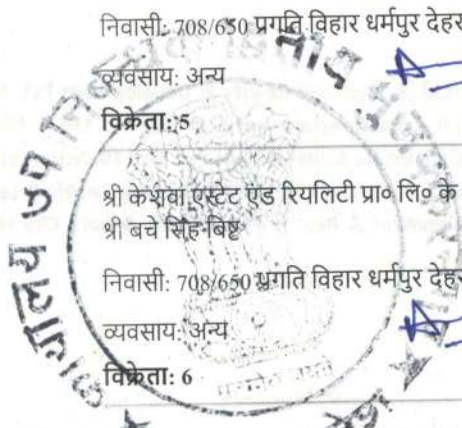 निवासी: 708/650 प्रगति विहार धर्मपुर देहर
व्यवसाय: अन्य
विक्रेता: 5
श्री केशवा एस्टेट एंड रियलिटी प्रा० लि० के
श्री बचे सिंह बिष्ट
निवासी: 708/650 प्रगति विहार धर्मपुर देहर
व्यवसाय: अन्य
विक्रेता: 6
कार्यालय उप